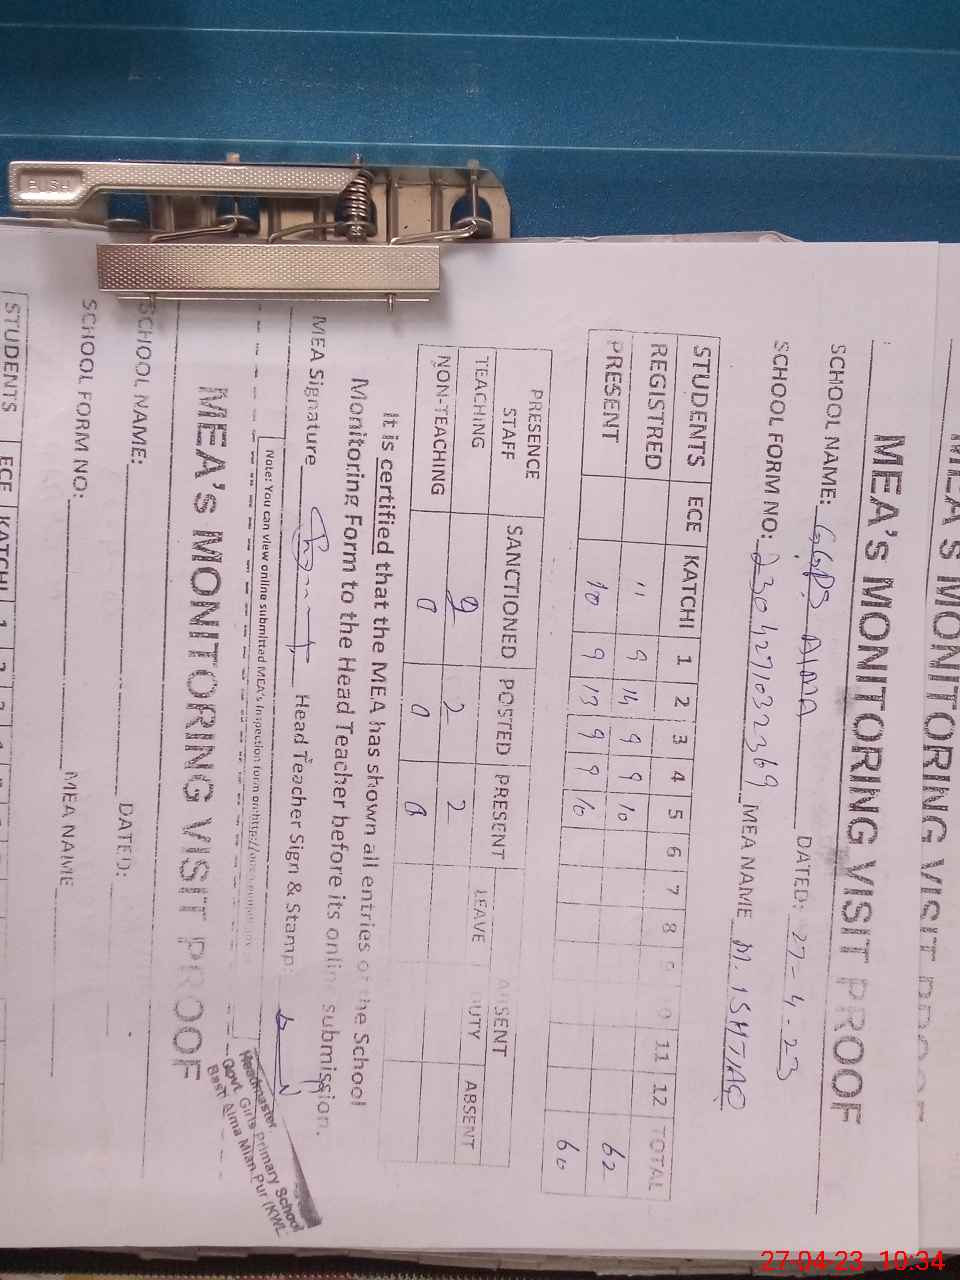 MEA's MONITORING VISIT
MEA's MONITORING VISIT PROOF
SCHOOL NAME: GGPS AIMA DATED: 27-4-23
SCHOOL FORM NO: 23042710322369 MEA NAME M. ISHTIAQ
STUDENTS ECE KATCHI 1 2 3 4 5 6 7 8 9 10 11 12 TOTAL
REGISTRED 11 9 14 9 9 10 62
PRESENT 10 9 13 9 9 10 60
PRESENCE STAFF SANCTIONED POSTED PRESENT ABSENT
LEAVE DUTY ABSENT
TEACHING 2 2 2
NON-TEACHING 0 0 0
It is certified that the MEA has shown all entries of the School
Monitoring Form to the Head Teacher before its online submission.
MEA Signature Head Teacher Sign & Stamp:
Headmaster
Govt. Girls Primary School
Basti Aima Mian Pur (KWL
Note: You can view online submitted MEA's Inspection form on:
MEA's MONITORING VISIT PROOF
SCHOOL NAME: DATED:
SCHOOL FORM NO: MEA NAME
STUDENTS ECE KATCHI 1 2 3 4
PUSH
27-04-23 10:34